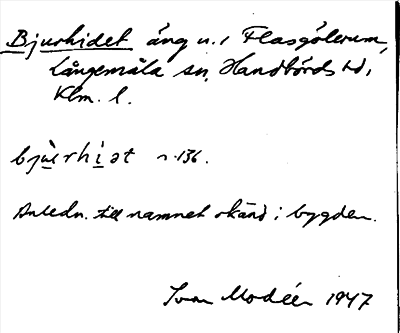 Bjurhidet äng u. i Flasgölerum,
Långemåla sn, Handbörds hd,
Klm. l.
bjùrhìət n. 136.
Anledn. till namnet okänd i bygden.
Ivar Modéer 1947